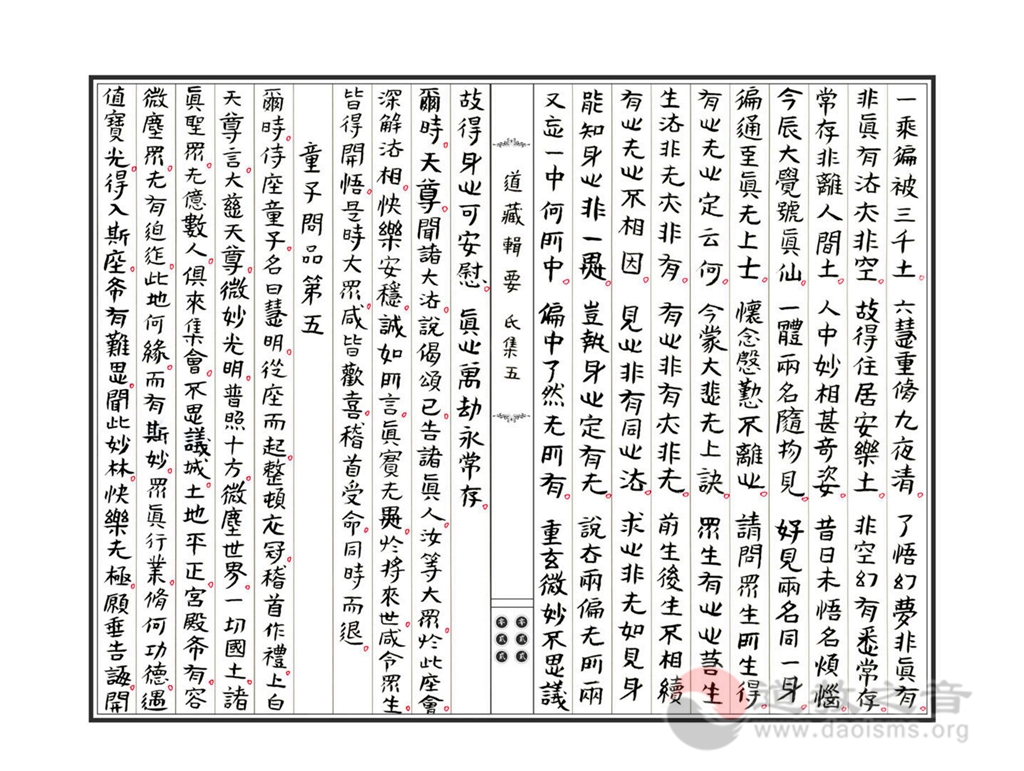 一乘徧被三千土。六慧重脩九夜清。了悟幻夢非眞有
非眞有法亦非空。故得住居安樂土。非空幻有悉常存
常存非離人間土。人中妙相甚奇姿。昔日未悟名煩惱。
今辰大覺號眞仙。一體兩名隨物見。好見兩名同一身。
徧通至眞无上士。懷念慇懃不離心。請問眾生所生得。
有心无心定云何。今蒙大悲无上訣。眾生有心心甚生
生法非无亦非有。有心非有亦非无。前生後生不相續
有心无心不相因。見心非有同心法。求心非无如見身
能知身心非一異。豈執身心定有无。說亦兩偏无所兩
又忘一中何所中。偏中了然无所有。重玄微妙不思議
道藏輯要 氐集五
零貳貳
零貳貳
故得身心可安慰。眞心萬劫永常存。
爾時。天尊。聞諸大法說偈頌已。告諸眞人。汝等大眾。於此座會。
深解法相。快樂安穩。誠如所言。眞實无異。於將來世。咸令眾生。
皆得開悟。是時大眾。咸皆歡喜。稽首受命。同時而退。
童子問品第五
爾時。侍座童子。名曰慧明。從座而起。整頓衣冠。稽首作禮。上白
天尊言。大慈天尊。微妙光明。普照十方。微塵世界。一切國土。諸
眞聖眾。无億數人。俱來集會。不思議城。土地平正。宮殿希有。容
微塵眾。无有迫迮。此地何緣。而有斯妙。眾眞行業。脩何功德。遇
值寶光。得入斯座。希有難思。聞此妙林。快樂无極。願垂告誨。開
道教之音
www.daoisms.org